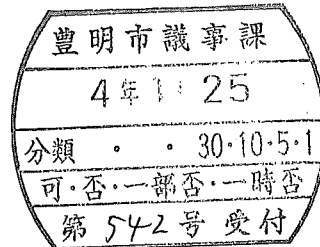 豊明市議事課
4年1 25
分類 ・ ・ 30・10・5・1
可・否・一部否・一時否
第542号受付